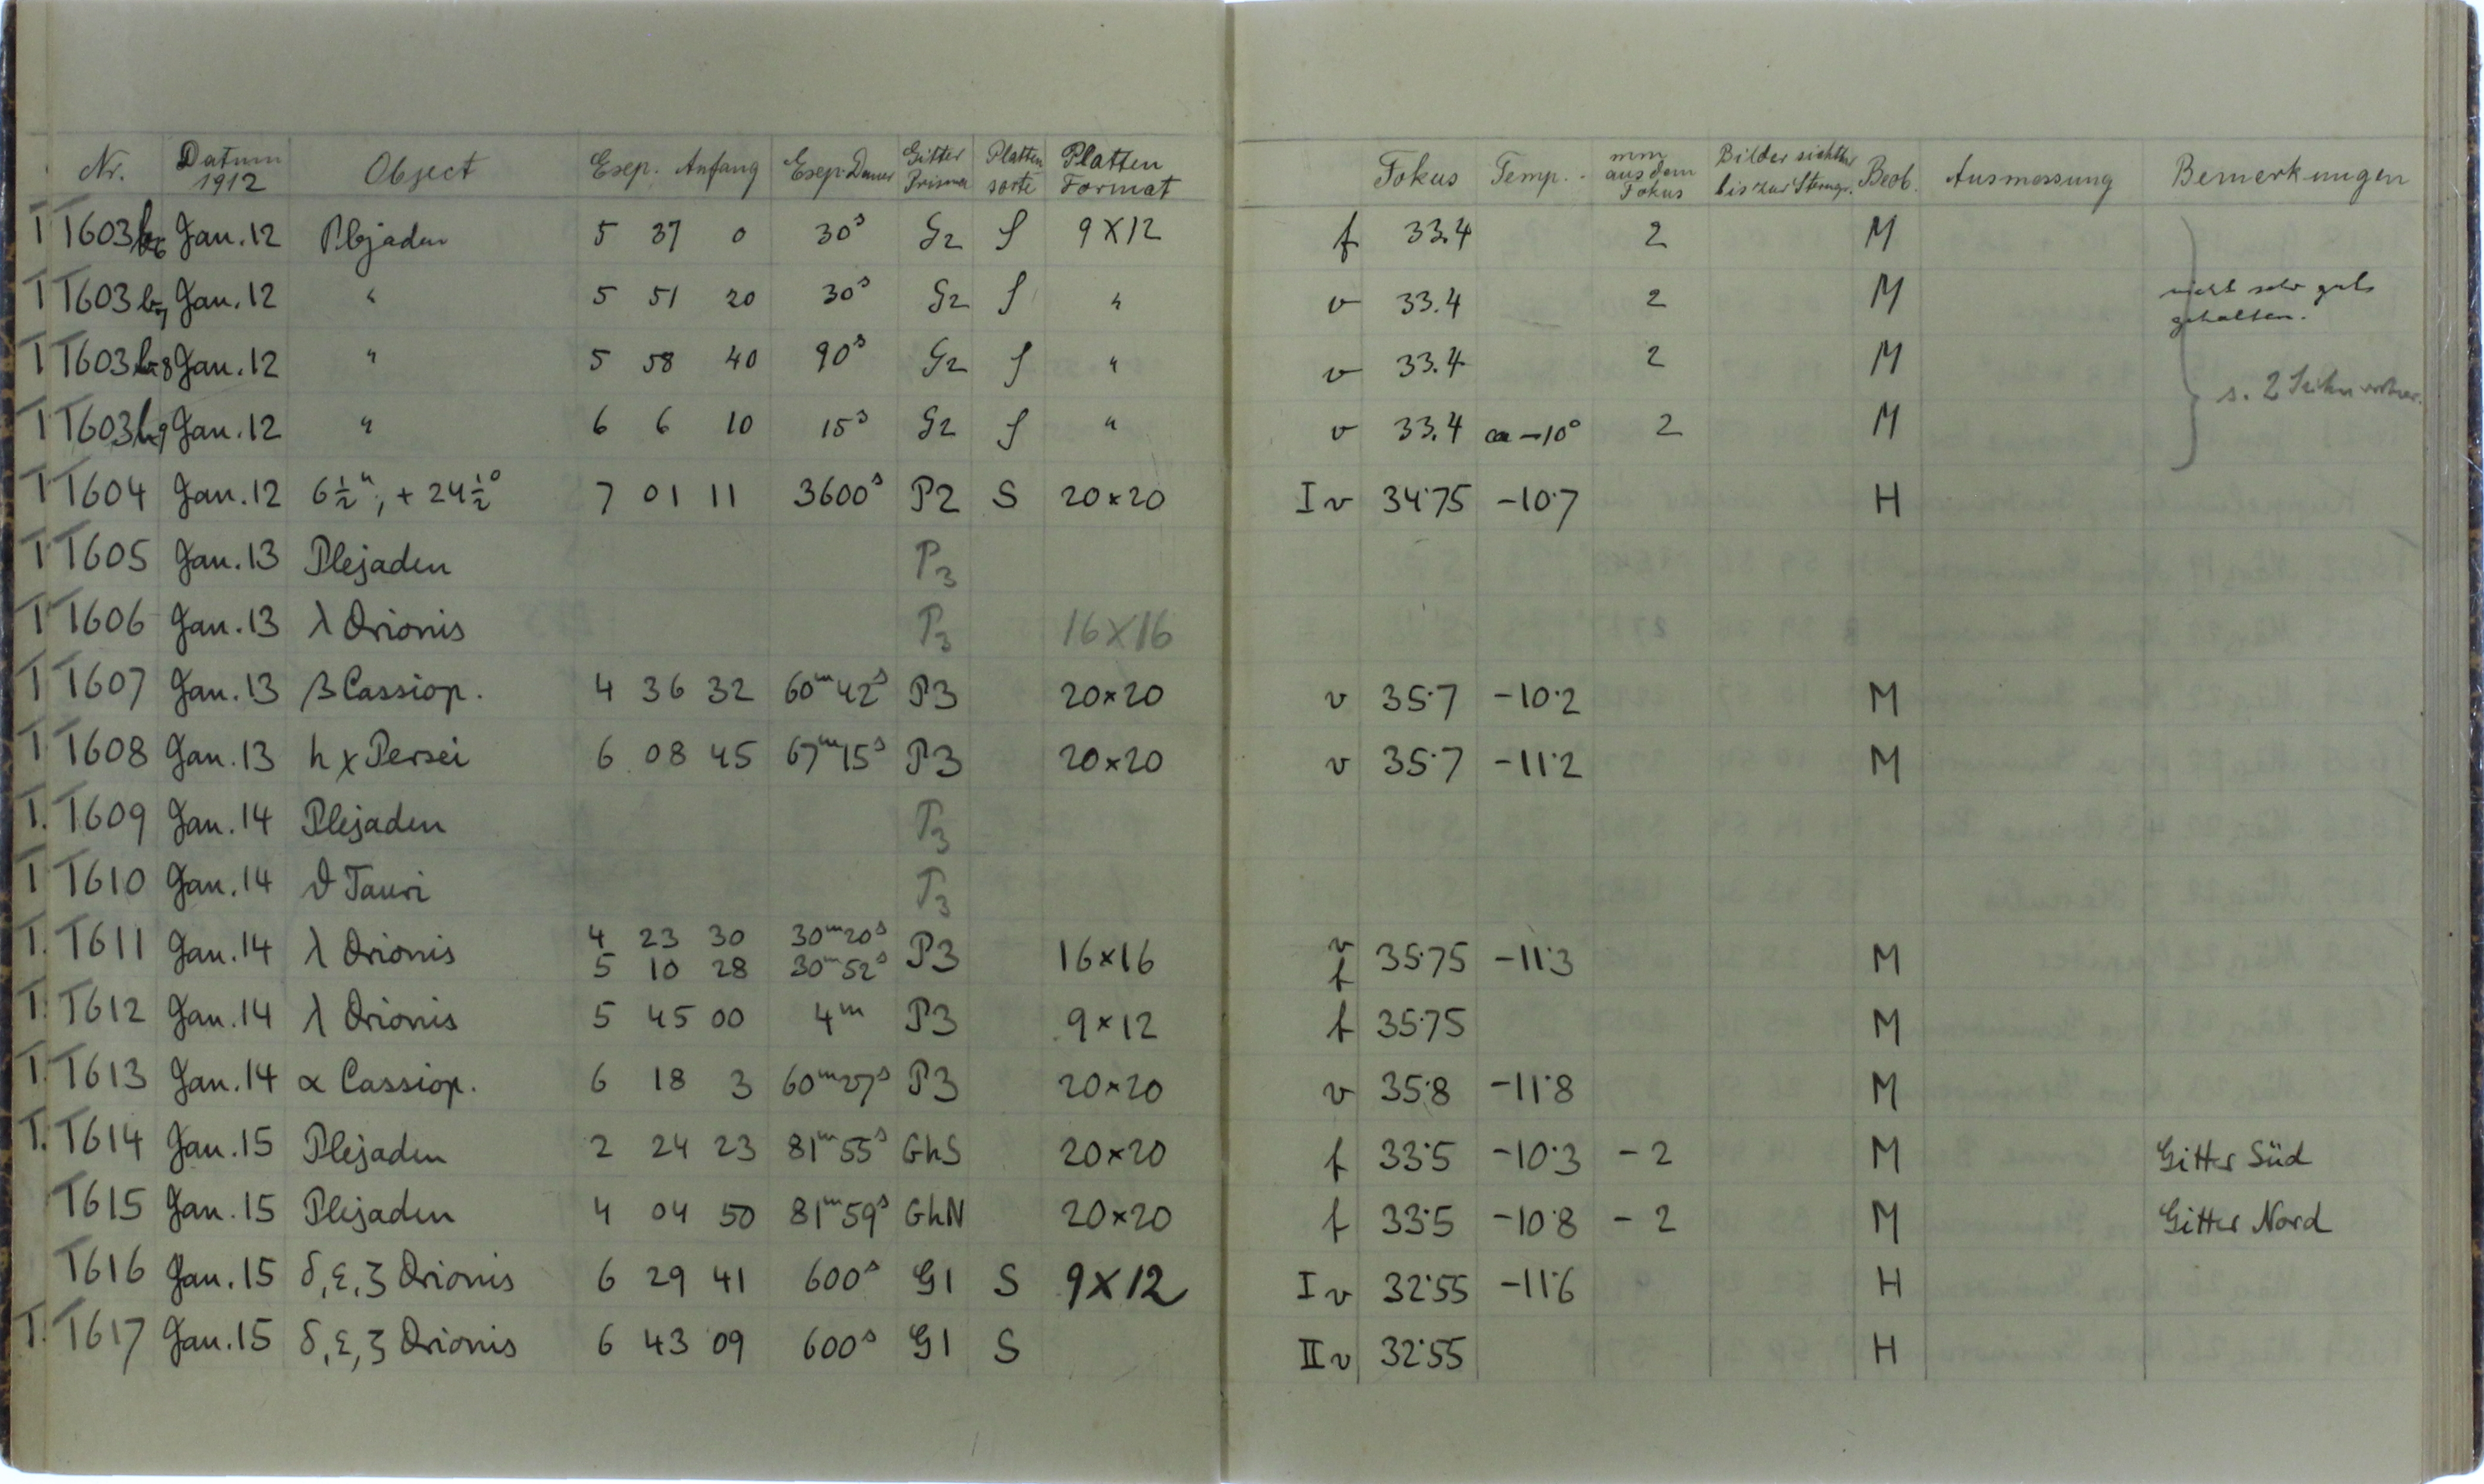 Nr. Datum 1912 Object Exp. Anfang Exp. Dauer Gitter Prisma Platten sorte Platten Format Fokus Temp. mm aus dem Fokus Bilder sichtbar bis zur Sterngr. Beob. Ausmessung Bemerkungen
T T603 Jan. 12 Plejaden 5 37 0 30s G2 S 9×12 f 33.4 2 M
T T603 Jan. 12 " 5 51 20 30s G2 S " v 33.4 2 M nicht sehr gut gehalten.
T T603 Jan. 12 " 5 58 40 90s G2 S " v 33.4 2 M
T T603 Jan. 12 " 6 6 10 15s G2 S " v 33.4 ca -10° 2 M s. 2
T T604 Jan. 12 6½h, + 24½° 7 01 11 3600s P2 S 20×20 I v 34.75 -10.7 H
T T605 Jan. 13 Plejaden P3
T T606 Jan. 13 λ Orionis P3 16×16
T T607 Jan. 13 β Cassiop. 4 36 32 60m42s P3 20×20 v 35.7 -10.2 M
T T608 Jan. 13 h χ Persei 6 08 45 67m15s P3 20×20 v 35.7 -11.2 M
T. T609 Jan. 14 Plejaden P3
T T610 Jan. 14 ϑ Tauri P3
T. T611 Jan. 14 λ Orionis 4 23 30 30m20s P3 16×16 v 35.75 -11.3 M
5 10 28 30m52s f
T. T612 Jan. 14 λ Orionis 5 45 00 4m P3 9×12 f 35.75 M
T. T613 Jan. 14 α Cassiop. 6 18 3 60m27s P3 20×20 v 35.8 -11.8 M
T. T614 Jan. 15 Plejaden 2 24 23 81m55s GhS 20×20 f 33.5 -10.3 -2 M Gitter Süd
T615 Jan. 15 Plejaden 4 04 50 81m59s GhN 20×20 f 33.5 -10.8 -2 M Gitter Nord
T616 Jan. 15 δ, ε, ζ Orionis 6 29 41 600s G1 S 9×12 I v 32.55 -11.6 H
T. T617 Jan. 15 δ, ε, ζ Orionis 6 43 09 600s G1 S II v 32.55 H